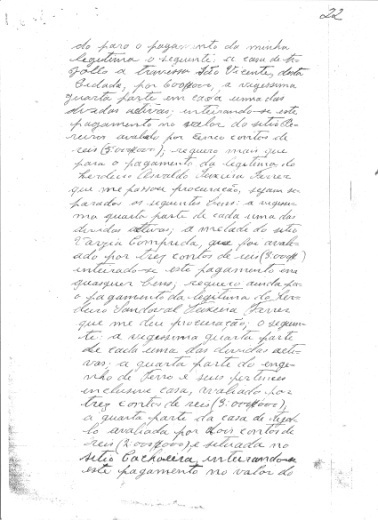 22
do para o pagamento da minha
legitima o seguinte: se casa de ti-
jollo a travessa São Vicente, desta
Cidade, por 600$000, a vegessima
quarta parte em cada uma das
dividas activas; inteirando-se este
pagamento no valor do sitio
avaliado por cinco contos de
reis (5:000$000); requeiro mais que
para o pagamento da legitima do
herdeiro Osvaldo Teixeira Ferrez
que me passou procuração, sejam se-
parados os seguintes bens: a veges-
ma quarta parte de cada uma das
dividas activas; a metade do sitio
Varzea Comprida, que foi avali-
ado por tres contos de reis (3:000$)
inteirado-se este pagamento em
quaesquer bens; requeiro ainda par
o pagamento da legitima do her-
deiro Sandoval Teixeira Ferrez
que me deu procuração; o seguin-
te: a vegessima quarta parte
de cada uma das dividas acti-
vas; a quarta parte do enge-
nho de ferro e seus pertences
inclusive casa, avaliado por
tres contos de reis (3:000$000)
a quarta parte da casa de tijol-
lo avaliada por dois contos de
reis (2:000$000), e situada no
sitio Cachoeira inteirando-se
este pagamento no valor do